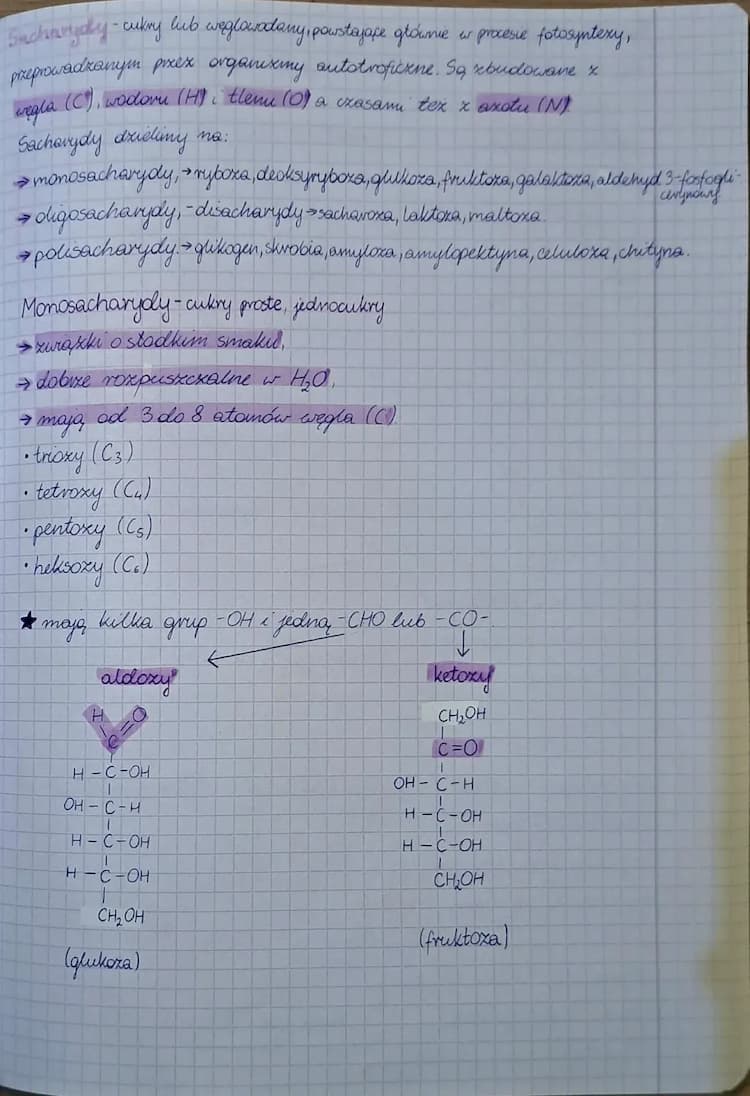 Sacharydy - cukry lub węglowodany, powstające głównie w procesie fotosyntezy,
przeprowadzanym przez organizmy autotroficzne. Są zbudowane z
węgla (C), wodoru (H) i tlenu (O) a czasami też z azotu (N)
Sacharydy dzielimy na:
→ monosacharydy, → ryboza, deoksyryboza, glukoza, fruktoza, galaktoza, aldehyd 3-fosfogli-
cerynowy
→ oligosacharydy, - disacharydy → sacharoza, laktoza, maltoza.
→ polisacharydy. → glikogen, skrobia, amyloza, amylopektyna, celuloza, chityna.
Monosacharydy - cukry proste, jednocukry
→ związki o słodkim smaku,
→ dobrze rozpuszczalne w H₂O,
→ mają od 3 do 8 atomów węgla (C).
• triozy (C₃)
• tetrozy (C₄)
• pentozy (C₅)
• heksozy (C₆)
★ mają kilka grup -OH i jedną -CHO lub -CO-.
aldozy
H O
C
H - C - OH
OH - C - H
H - C - OH
H - C - OH
CH₂OH
(glukoza)
ketozy
CH₂OH
C=O
OH - C - H
H - C - OH
H - C - OH
CH₂OH
(fruktoza)